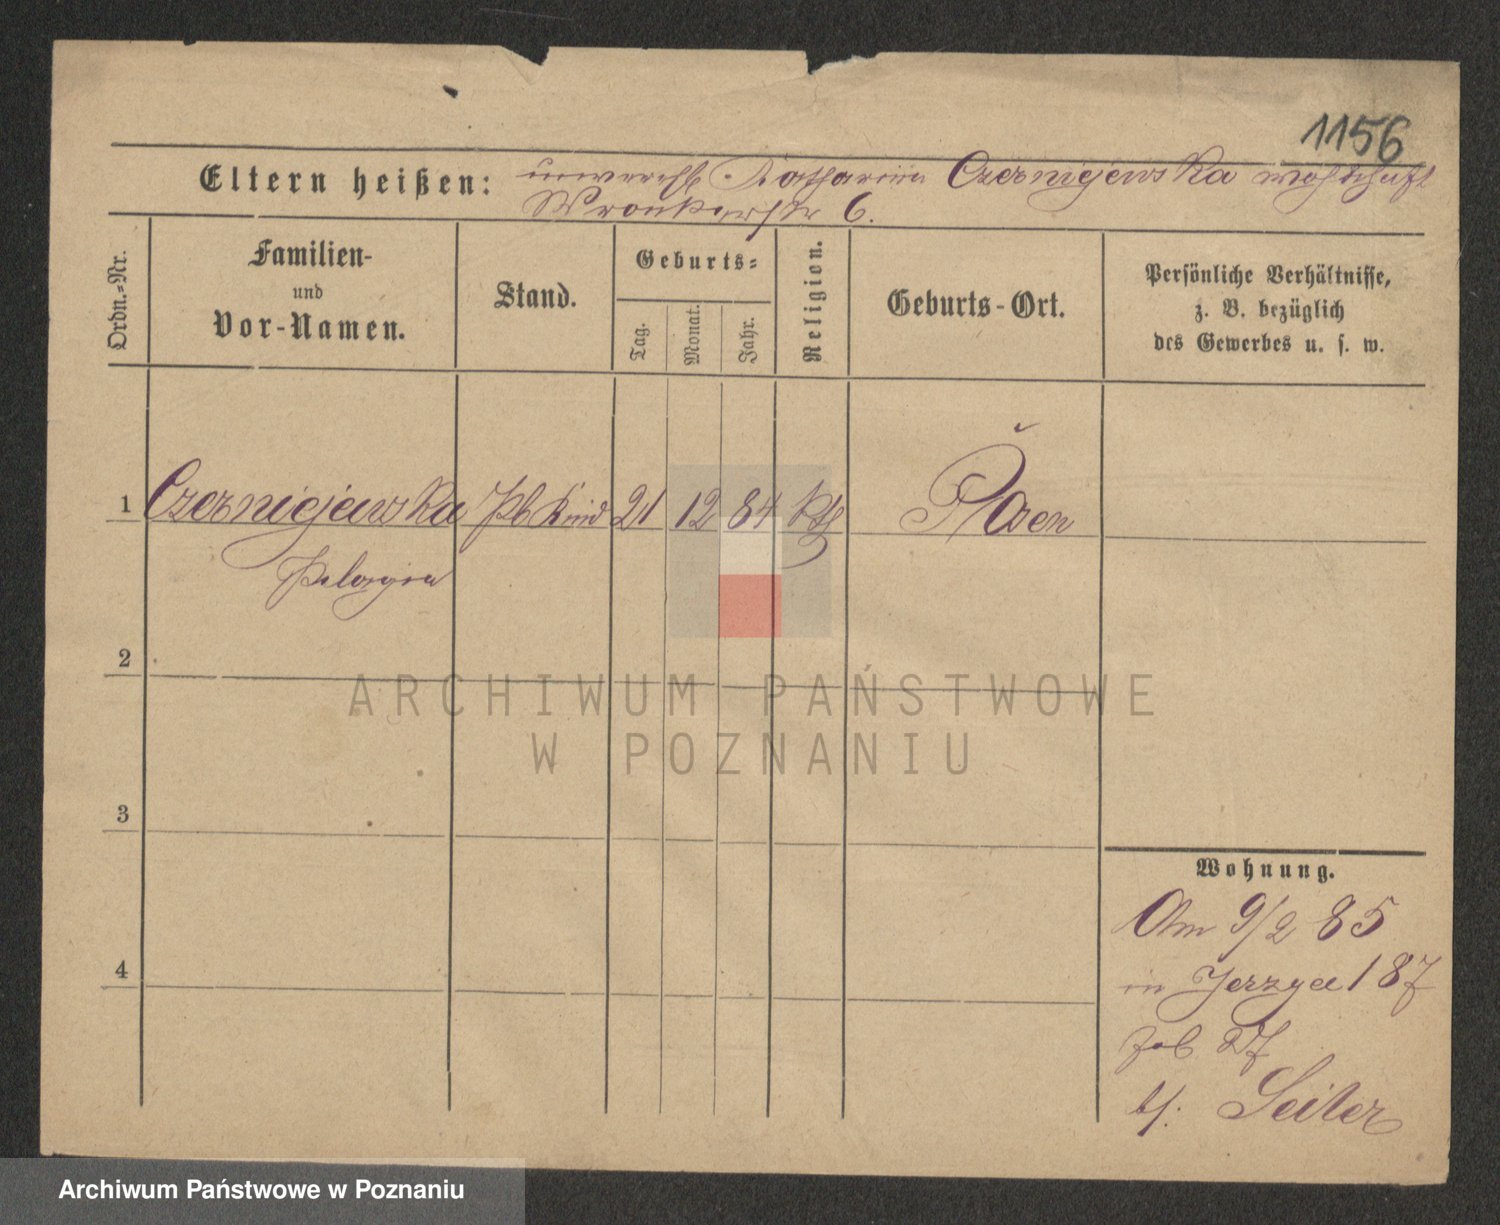 1156
Eltern heißen: unverehl. Katharina Czerniejewska wohnhaft
Wronkerstr 6.
Ordn.-Nr.
Familien-
und
Vor-Namen.
Stand.
Geburts-
Tag.
Monat.
Jahr.
Religion.
Geburts-Ort.
Persönliche Verhältnisse,
z. B. bezüglich
des Gewerbes u. s. w.
1 Czerniejewska Kind 21 12 84 kth Posen
Pelagia
2
3
4
Wohnung.
Am 9/2 85
in Jerzyce 187
27
b/: Seiler
ARCHIWUM PAŃSTWOWE
W POZNANIU
Archiwum Państwowe w Poznaniu